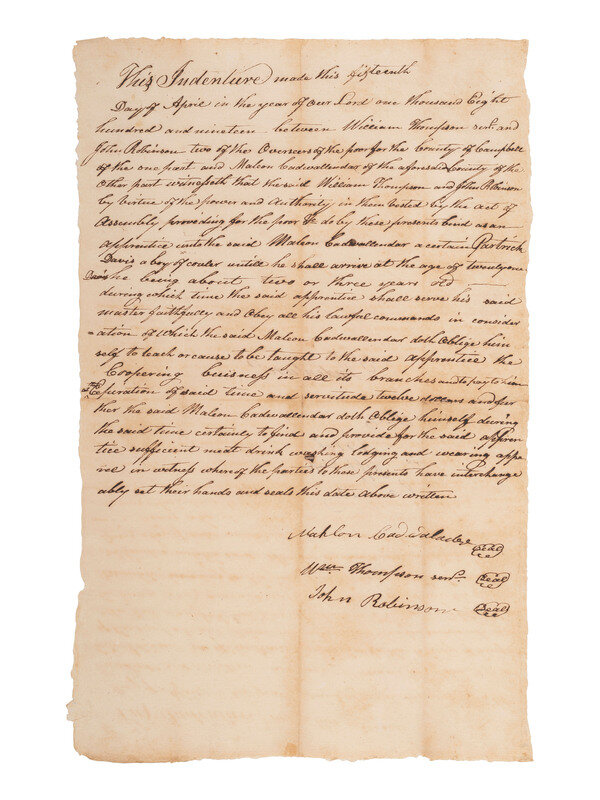 This Indenture made this fifteenth
Day of April in the year of our Lord one thousand Eight
hundred and nineteen between William Thompson senr. and
John Robinson two of the Overseers of the poor for the County of Campbell
of the one part and Maleon Cadwallendar of the aforesaid County of the
Other part witnesseth that the said William Thompson and John Robinson
by Virtue of the power and Authority in them vested by the act of
Assembly providing for the poor &c do by these presents bind as an
apprentice unto the said Maleon Cadwallendar a certain Partrick
Davis a boy of couler untill he shall arrive at the age of twentyone
he being about two or three years old
during which time the said apprentice shall serve his said
master faithfully and Obey all his lawful commands in consider
ation of Which the said Maleon Cadwallendar doth Oblege him
self to teach or cause to be taught to the said apprentice the
Coopering buisness in all its branches and to pay to him
Expiration of said time and servitude twelve dollars and fur
ther the said Maleon Cadwallendar doth Oblege himself during
the said time certainty to find and provide for the said appren
tice sufficient meat drink washing lodging and wearing appe
rel in witness where of the parties to these presents have interchange
ably set their hands and seals this date above written
Mahlon Cadwalader Seal
Wm. Thompson senr. Seal
John Robinson Seal